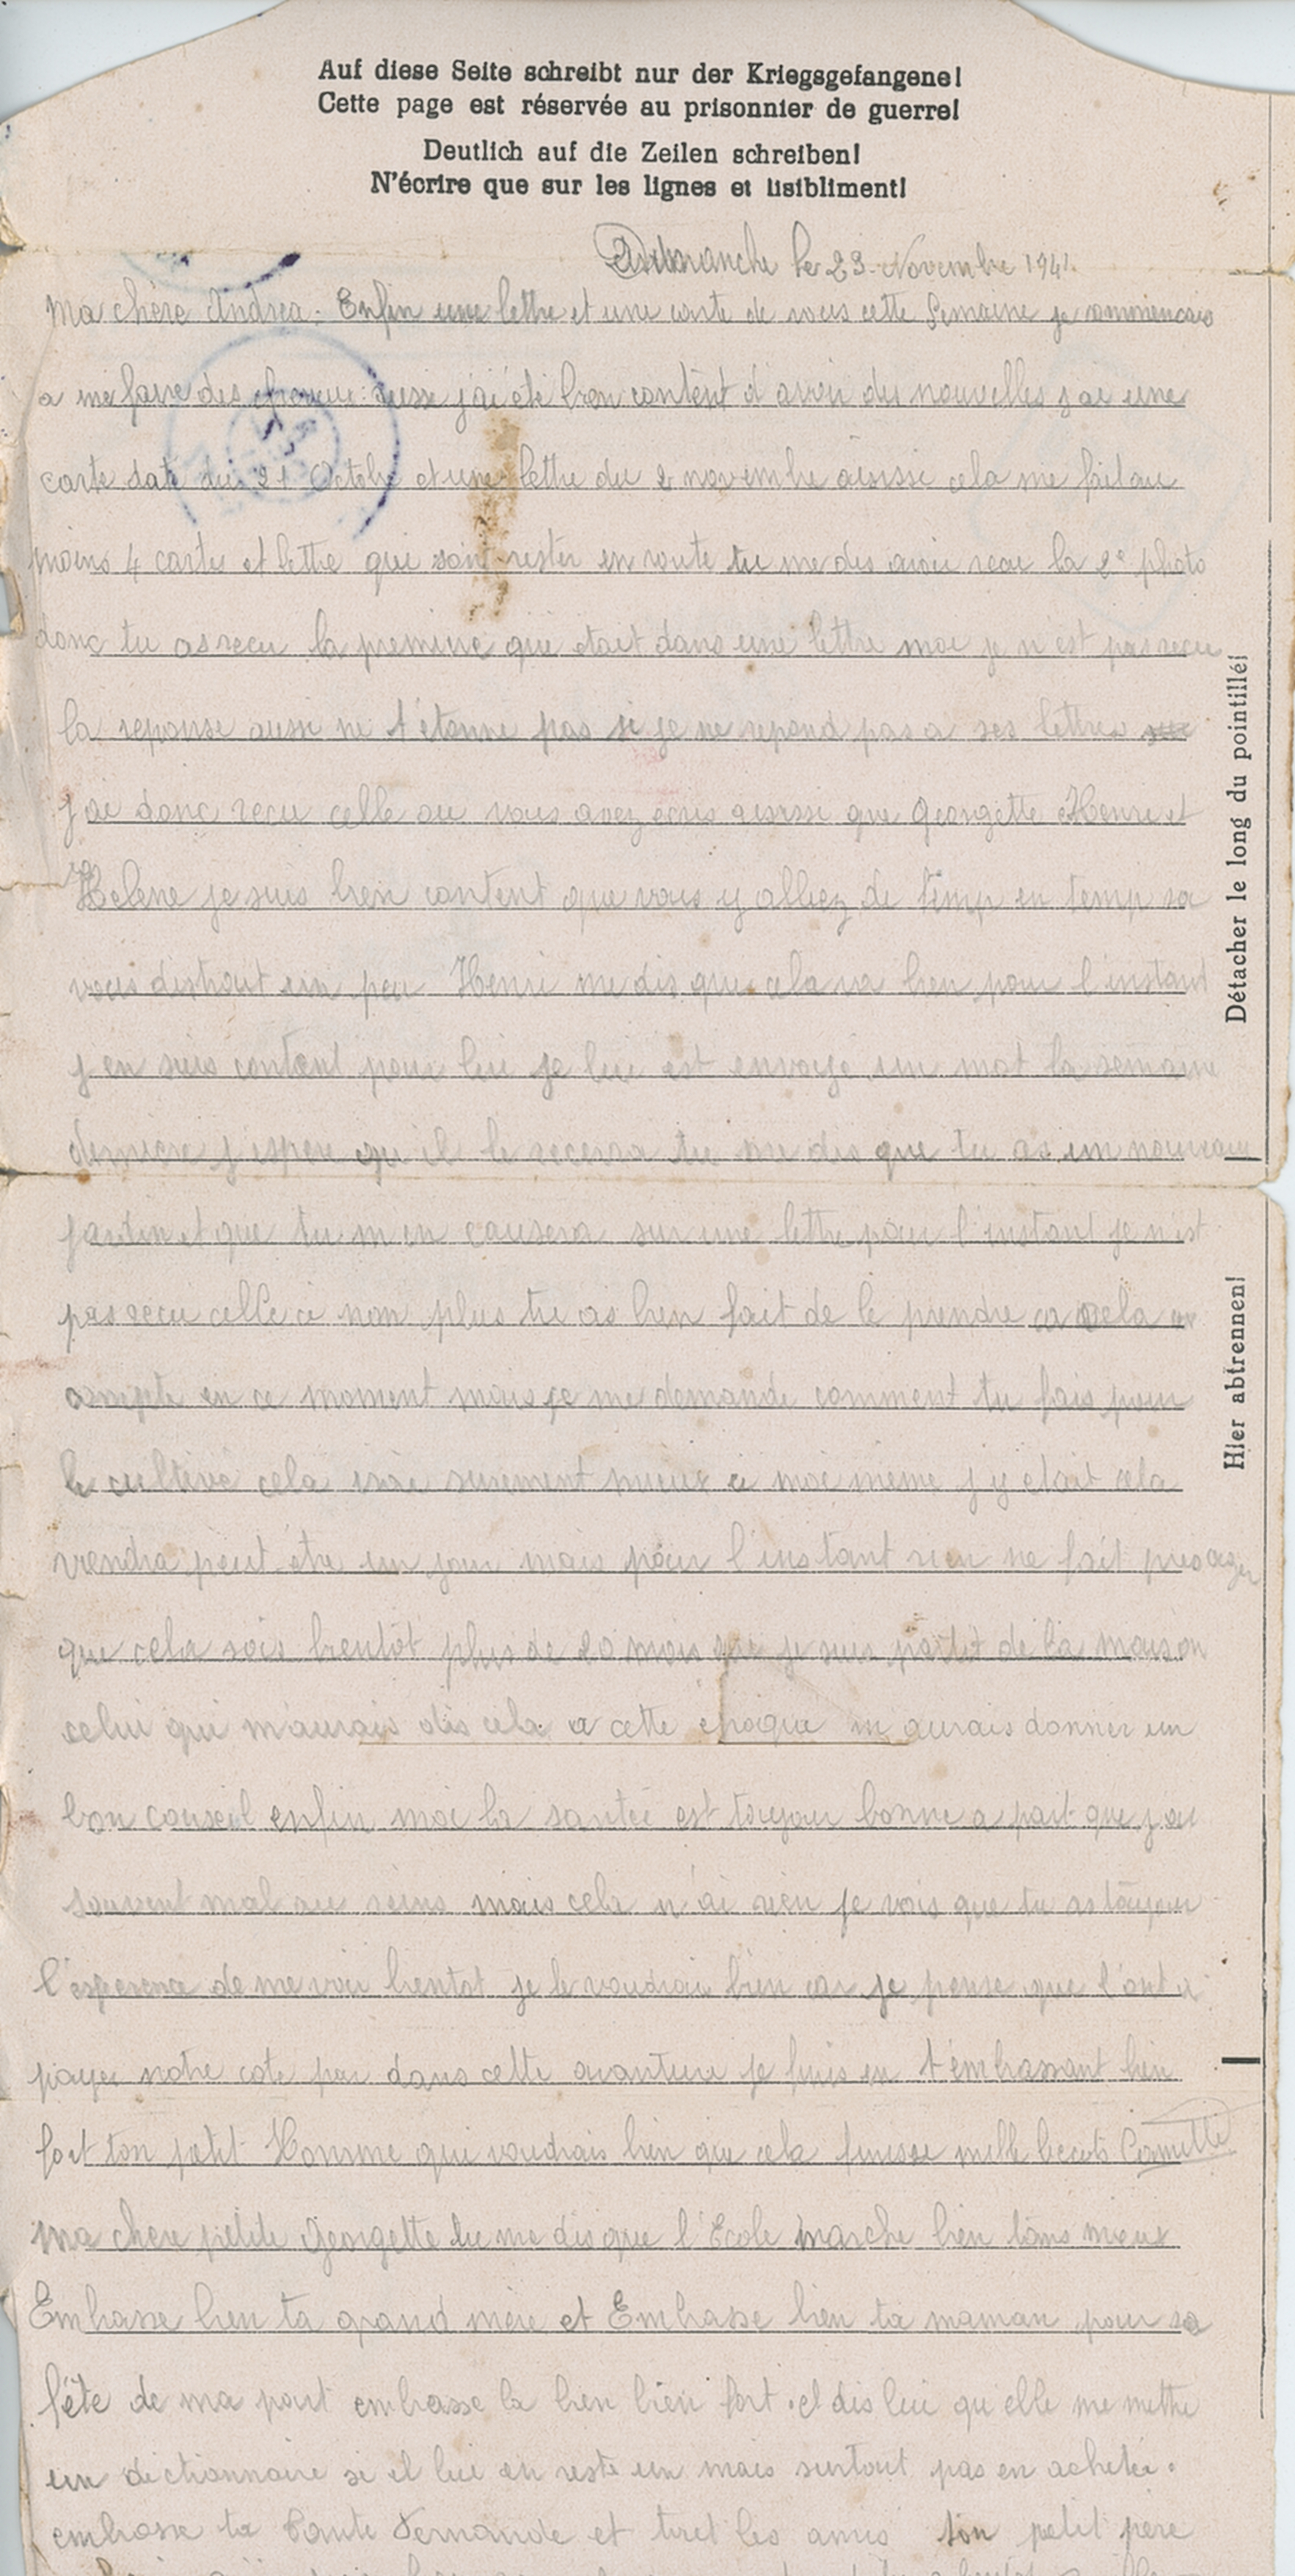 Auf diese Seite schreibt nur der Kriegsgefangene!
Cette page est réservée au prisonnier de guerre!
Deutlich auf die Zeilen schreiben!
N'écrire que sur les lignes et lisibliment!
Dimanche le 23 Novembre 1941
Ma chère Andrea. Enfin une lettre et une carte de vous cette Semaine je commencais
a me faire des cheveux aussi j'ai été bien contént d'avoir des nouvelles j'ai une
carte daté du 21 Octobre et une lettre du 2 novembre aussi cela me fait au
moins 4 cartes et lettre qui sont rester en route tu me dis avoir recu la 2e photo
donc tu as recu la premiere qui etait dans une lettre moi je n'est pas recu
la reponse aussi ne t'étonne pas si je ne repond pas a ses lettres
j'ai donc recu celle ou vous avez ecris aussi que Georgette Henri et
Helene je suis bien content que vous y alliez de temp en temp sa
vous distrait un peu Henri me dis que cela va bien pour l'instant
j'en suis content pour lui je lui est envoyé un mot la semaine
derniere j'espere qu'il le recevra tu me dis que tu as un nouveau
jardin et que tu m'en causera sur une lettre pour l'instant je n'est
pas recu celle ci non plus tu as bien fait de le prendre car cela
compte en ce moment mais je me demande comment tu fais pour
le cultivé cela irai surement mieux si moi même j'y etait cela
viendra peut être un jour mais pour l'instant rien ne fait presager
que cela sois bientôt plus de 20 mois que je suis partit de la maison
celui qui m'aurais dis cela a cette epoque m'aurais donner un
bon conseil enfin moi la santée est toujour bonne a part que j'ai
souvent mal au reins mais cela n'ai rien je vois que tu as toujour
l'esperence de me voir bientot je le voudrai bien car je pense que l'ont a
payer notre cote par dans cette avanture je finis en t'embrassant bien
fort ton petit Homme qui voudrais bien que cela finisse mille becots Camille
Ma chere petite Georgette tu me dis que l'Ecole marche bien tans mieux
Embrasse bien ta grand mère et Embrasse bien ta maman pour sa
fête de ma part embrasse la bien bien fort. et dis lui qu'elle me mette
un dictionnaire si il lui en reste un mais surtout pas en acheter.
embrasse ta Tante Fernande et tout les amis ton petit père
Détacher le long du pointillé!
Hier abtrennen!